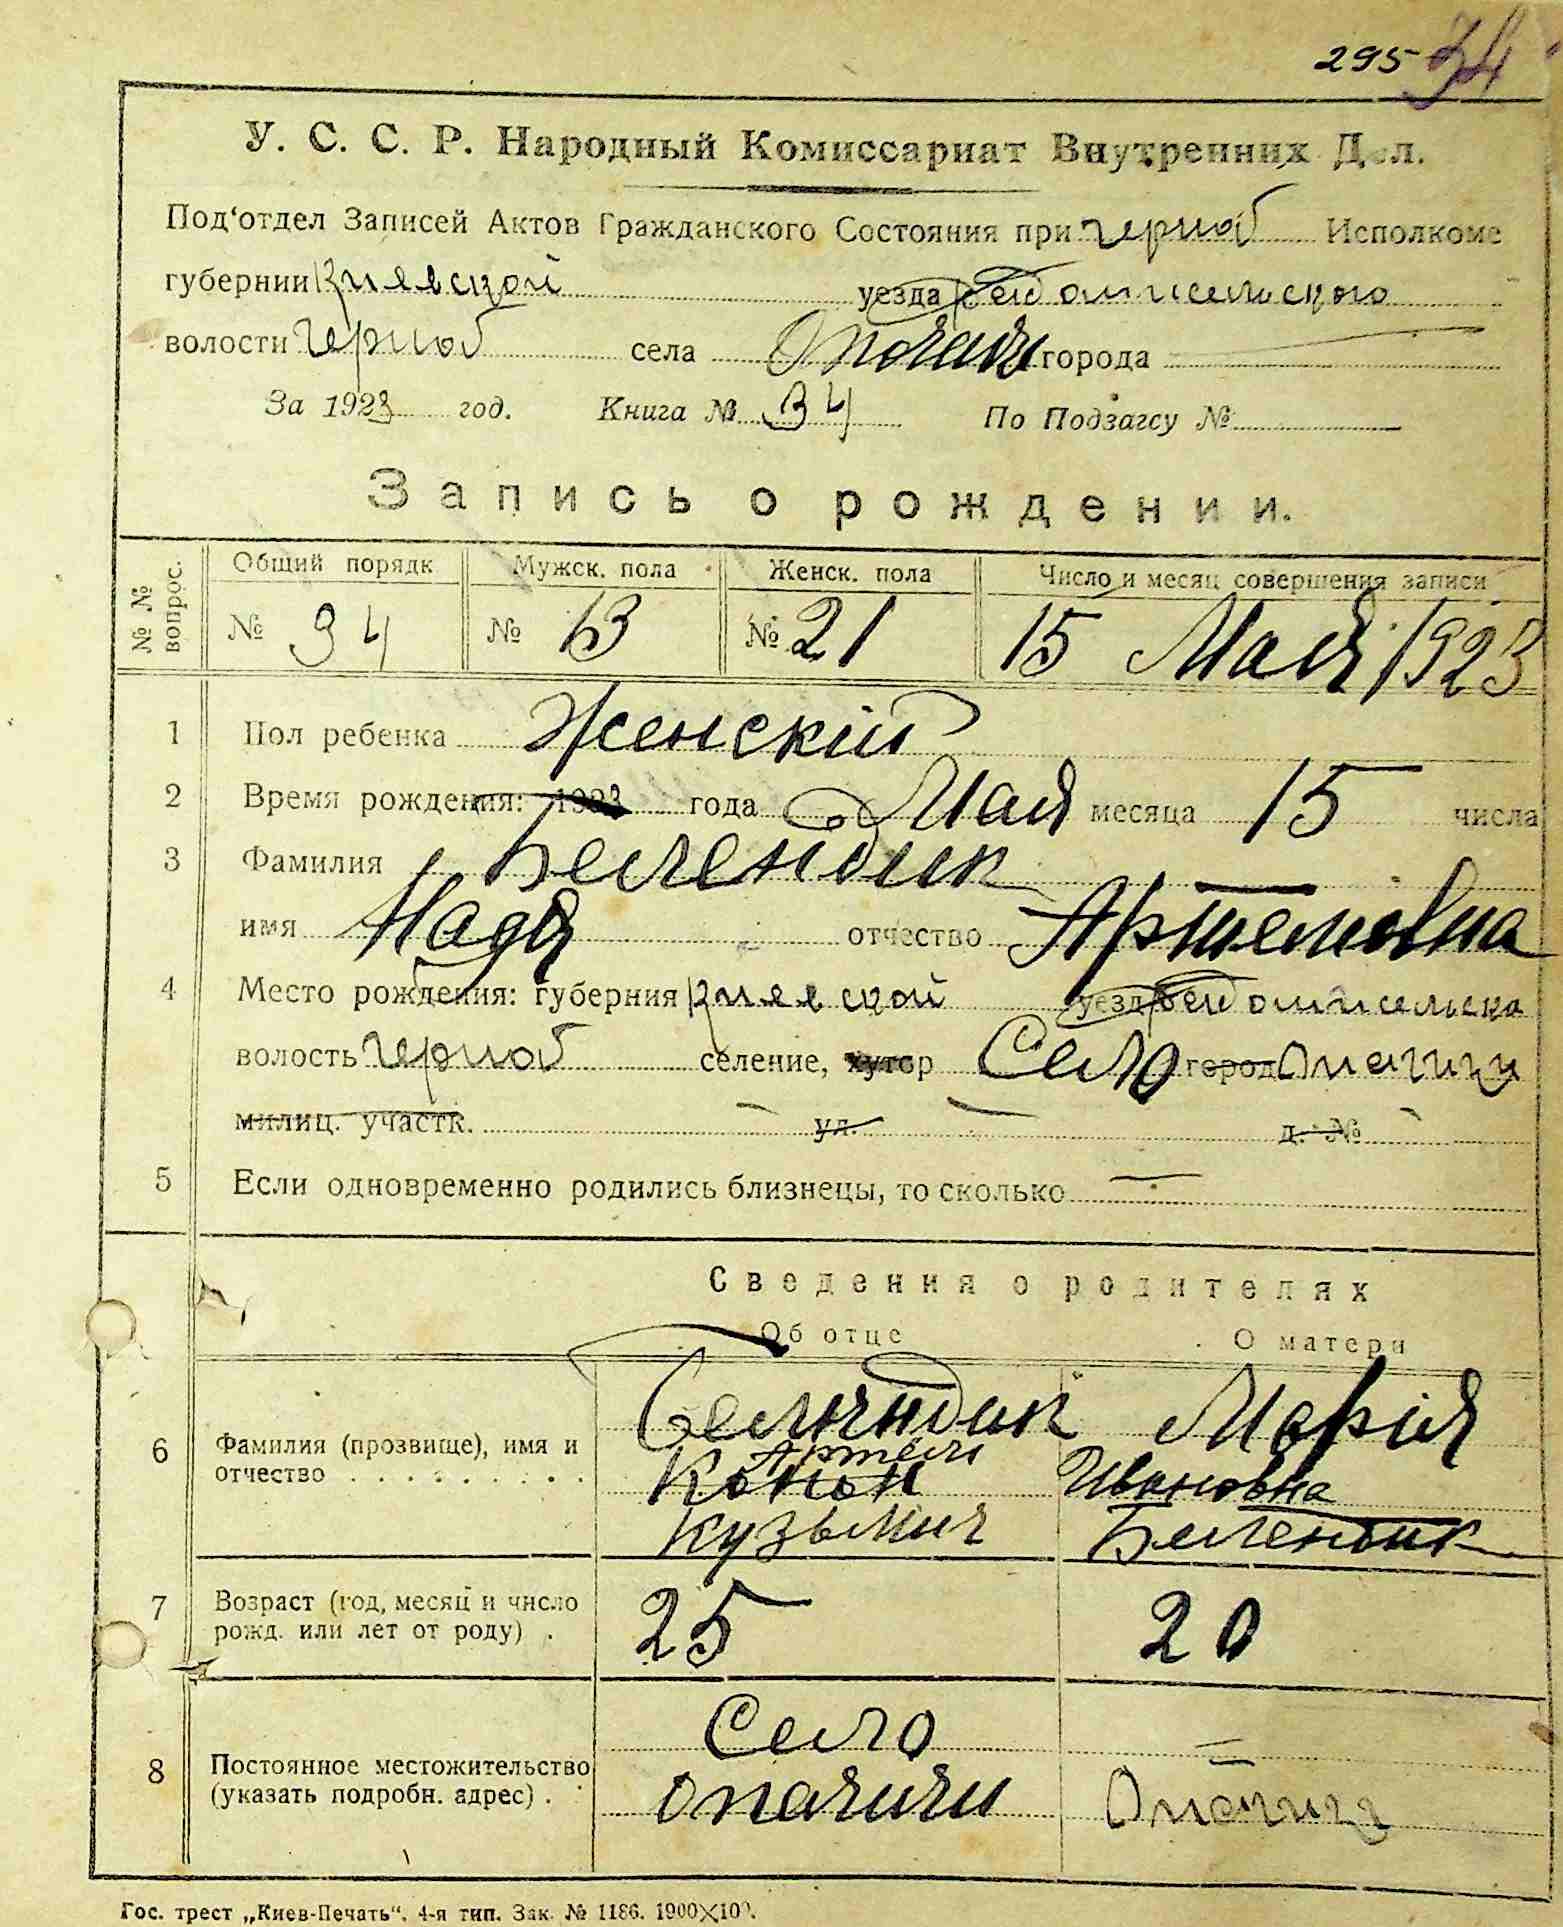 295 34
У. С. С. Р. Народный Комиссариат Внутренних Дел.
Под‘отдел Записей Актов Гражданского Состояния при Черноб Исполкоме
губернии Киевской уезда
волости Черноб села Опачичи города
За 1923 год. Книга № 34 По Подзагсу №
Запись о рождении.
№ № вопрос. Общий порядк Мужск. пола Женск. пола Число и месяц совершения записи
№ 34 № 13 № 21 15 Мая 1923
1 Пол ребенка Женскій
2 Время рождения: 1923 года Мая месяца 15 числа
3 Фамилия Белендик
имя Надя отчество Артемовна
4 Место рождения: губерния Киевской уезд
волость Черноб селение, хутор Село город Опачичи
милиц. участк. ул. д. №
5 Если одновременно родились близнецы, то сколько —
Сведения о родителях
Об отце О матери
6 Фамилия (прозвище), имя и отчество
Белендик Марія
Артем
Конон Ивановна
Кузьмич Белендик
7 Возраст (год, месяц и число рожд. или лет от роду) . 25 20
8 Постоянное местожительство (указать подробн. адрес) .
Село —
Опачичи Опачичи
Гос. трест „Киев-Печать“. 4-я тип. Зак. № 1186. 1900×100.